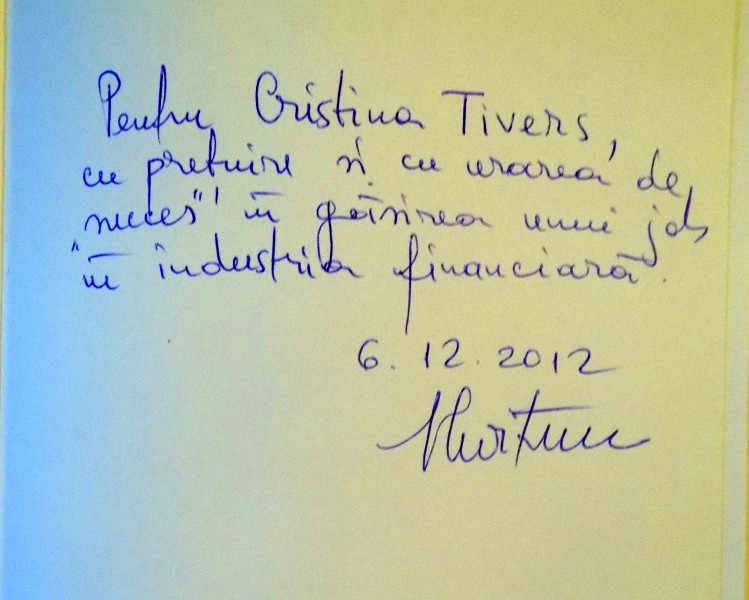 Pentru Cristina Tivers,
cu prețuire și cu urarea de
"succes" în găsirea unui job
"în industria financiară".
6. 12. 2012